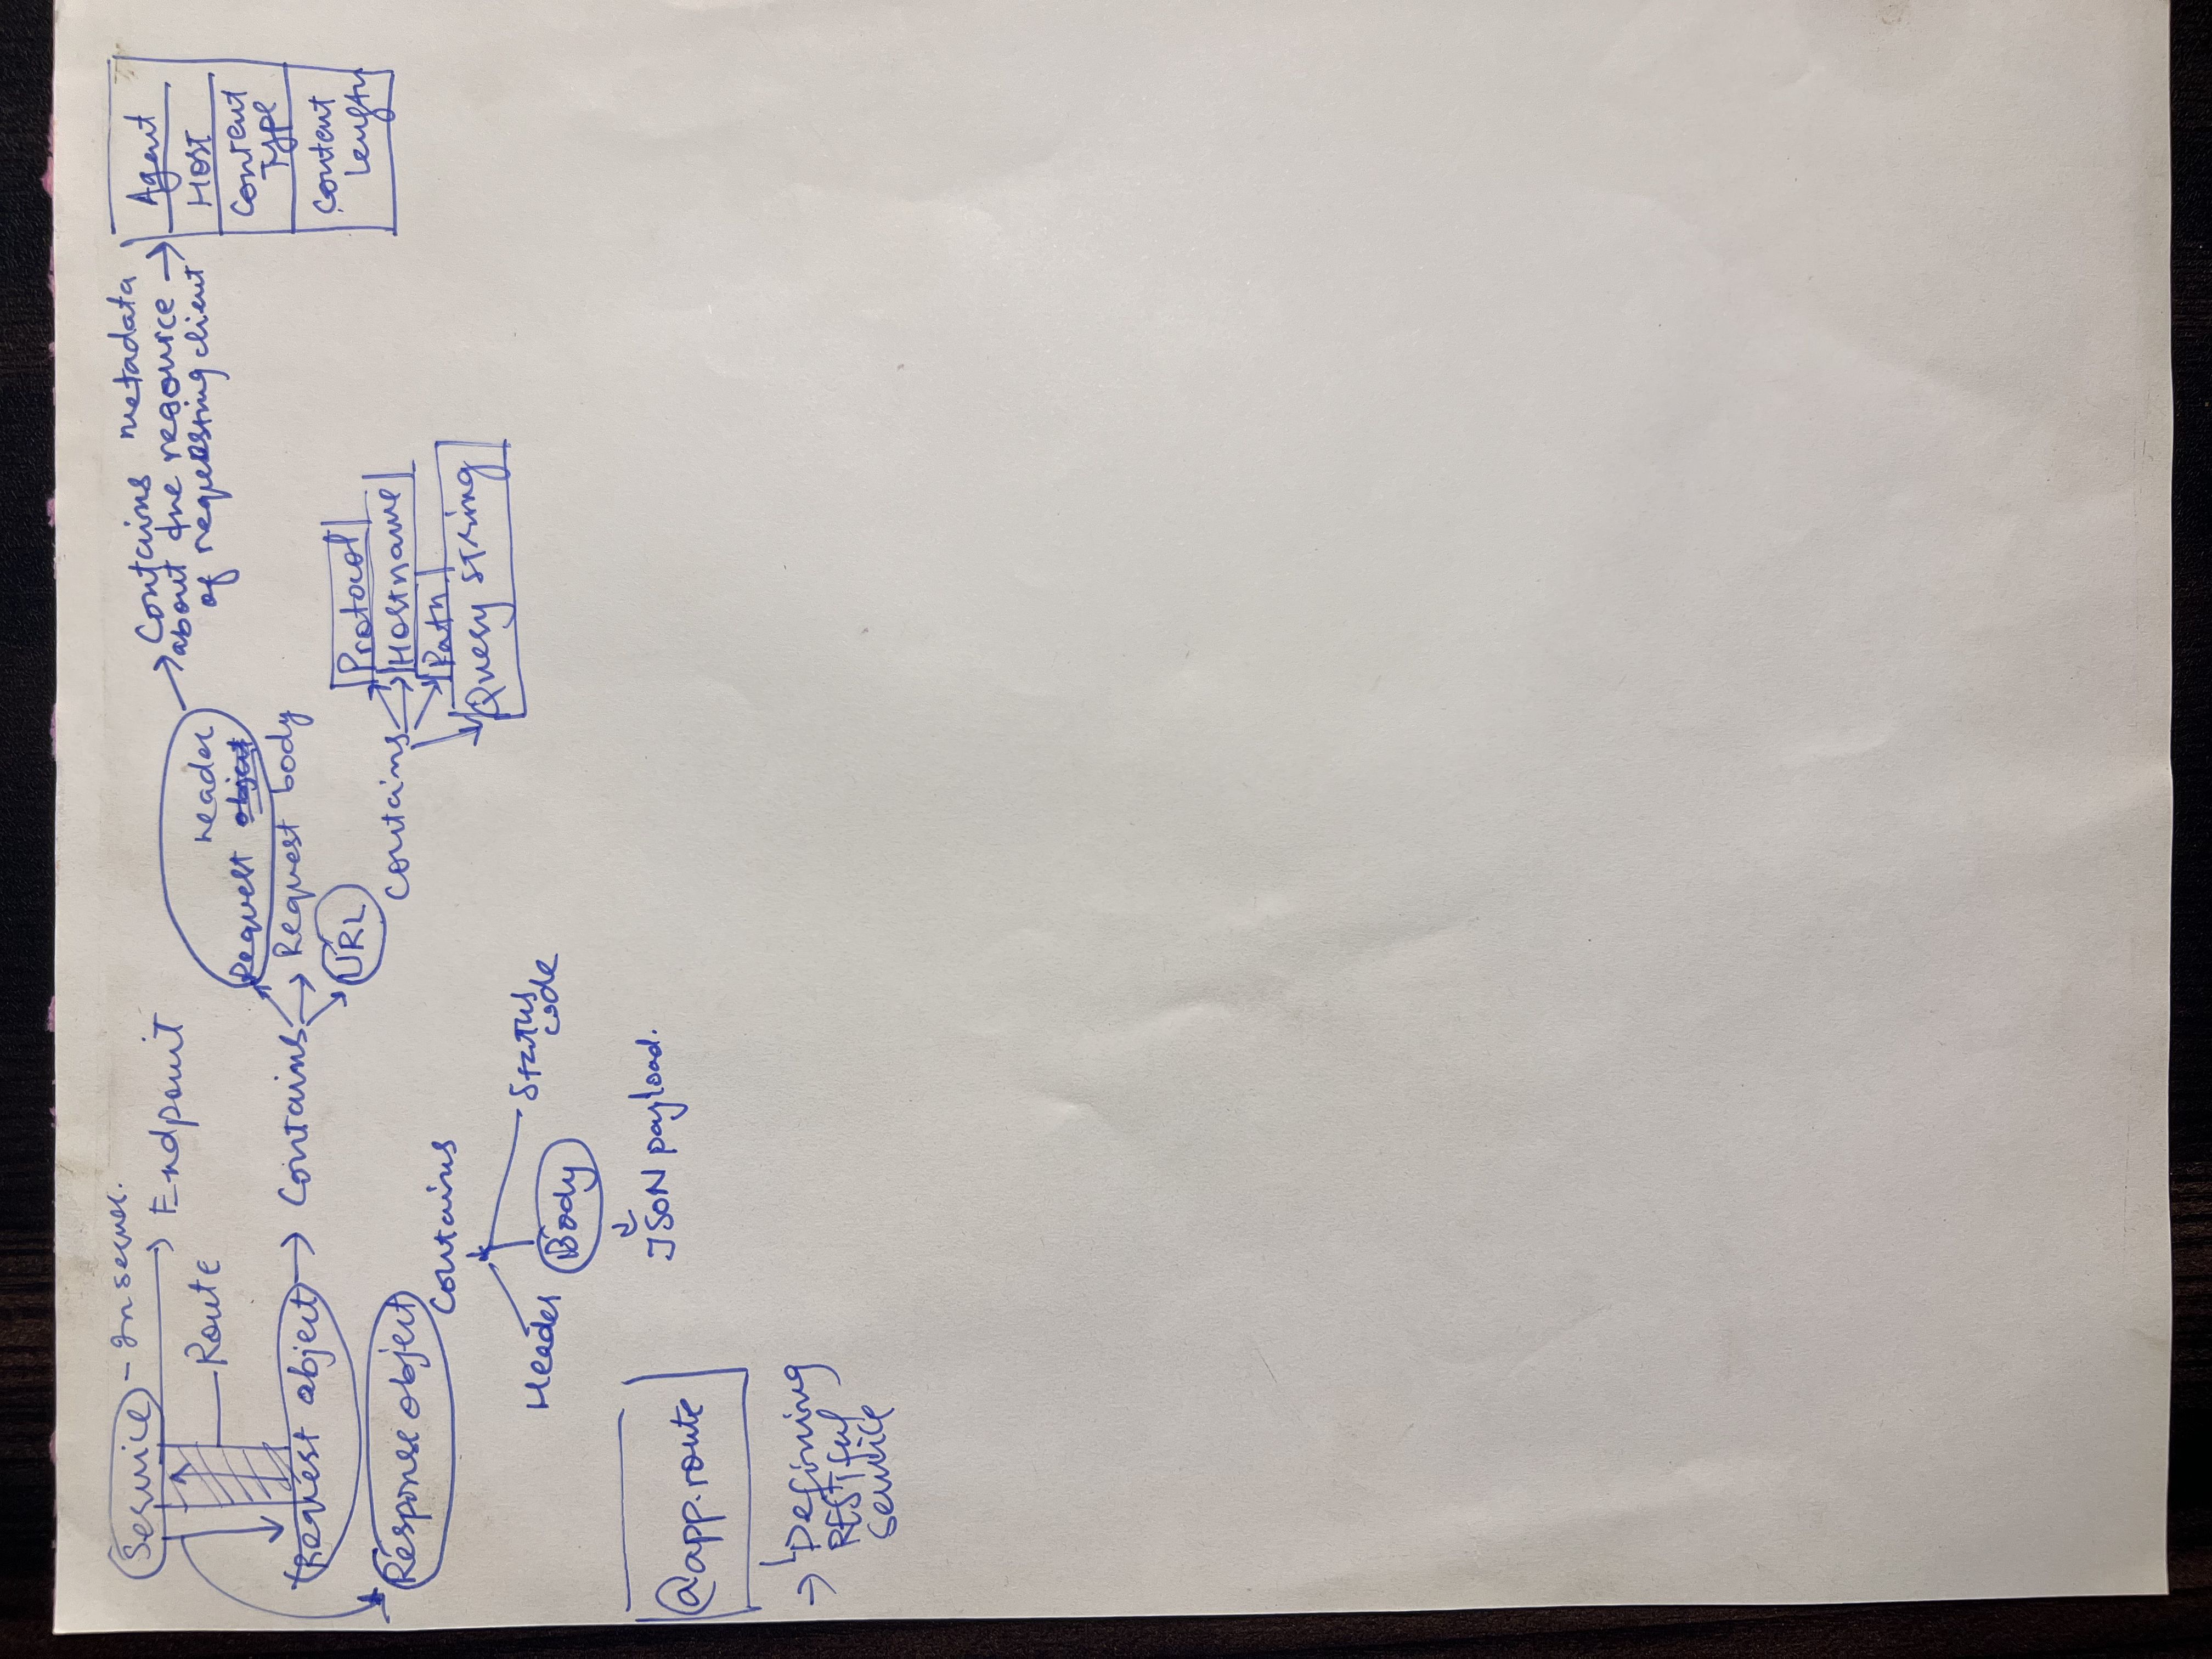 Service - In server.
→ Endpoint
Route
Request object → Contains
Request header
object
Request body
URL
→ Contains metadata
about the resource →
of requesting client
Agent
Host
Content
Type
Content
Length
Contains
Protocol
Hostname
Path
Query string
Response object
Contains
Header
Body
Status
code
JSON payload.
@app.route
→ Defining
RESTful
service